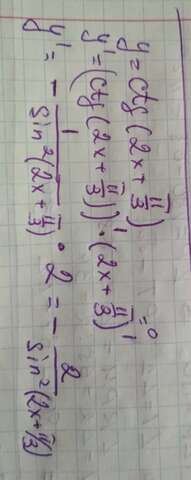 y = ctg (2x + π/3)
y' = (ctg (2x + π/3))' · (2x + π/3)' = 0
y' = - 1/sin²(2x + π/3) · 2 = - 2/sin²(2x + π/3)